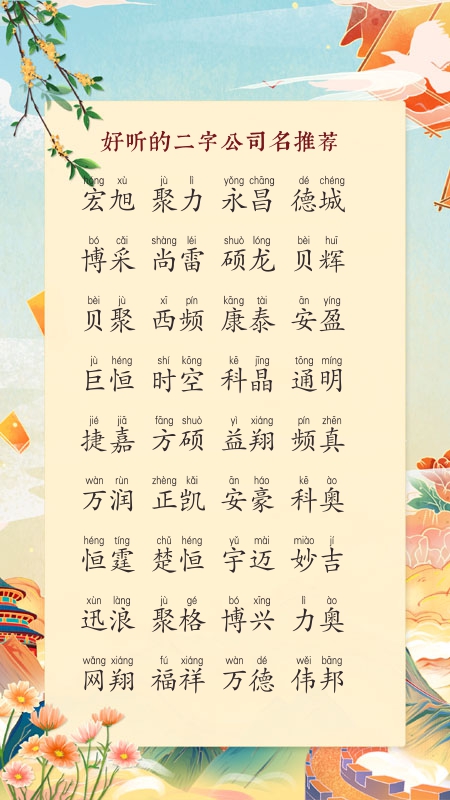 好听的二字公司名推荐
hóng xù jù lì yǒng chāng dé chéng
宏旭 聚力 永昌 德城
bó cǎi shàng léi shuò lóng bèi huī
博采 尚雷 硕龙 贝辉
bèi jù xī pín kāng tài ān yíng
贝聚 西频 康泰 安盈
jù héng shí kōng kē jīng tōng míng
巨恒 时空 科晶 通明
jié jiā fāng shuò yì xiáng pín zhēn
捷嘉 方硕 益翔 频真
wàn rùn zhèng kǎi ān háo kē ào
万润 正凯 安豪 科奥
héng tíng chǔ héng yǔ mài miào jí
恒霆 楚恒 宇迈 妙吉
xùn làng jù gé bó xīng lì ào
迅浪 聚格 博兴 力奥
wǎng xiáng fú xiáng wàn dé wěi bāng
网翔 福祥 万德 伟邦